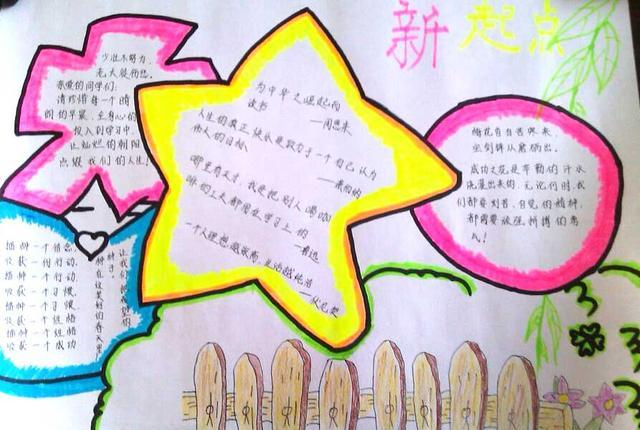 新起点
少壮不努力,
老大徒伤悲。
亲爱的同学们:
请珍惜每一个晴
朗的早晨,全身心的
投入到学习中,
让灿烂的朝阳
点缀我们的人生!
为中华之崛起而
读书 ——周恩来
人生的真正快乐是致力于一个自己认为
伟人的目标。
——萧伯纳
哪里有天才,我是把别人喝咖
啡的工夫都用在学习上的
——鲁迅
一个人理想越崇高,生活越纯洁
——伏尼契
梅花香自苦寒来,
宝剑锋从磨砺出。
成功之花是辛勤的汗水
浇灌出来的,无论何时,我
们都要刻苦、自觉的精神,
都需要顽强拼搏的勇
气!
播种一个信念,
收获一份行动,
播种一个行动,
收获一个习惯,
播种一个习惯,
收获一个性格
播种一个性格
收获一个成功